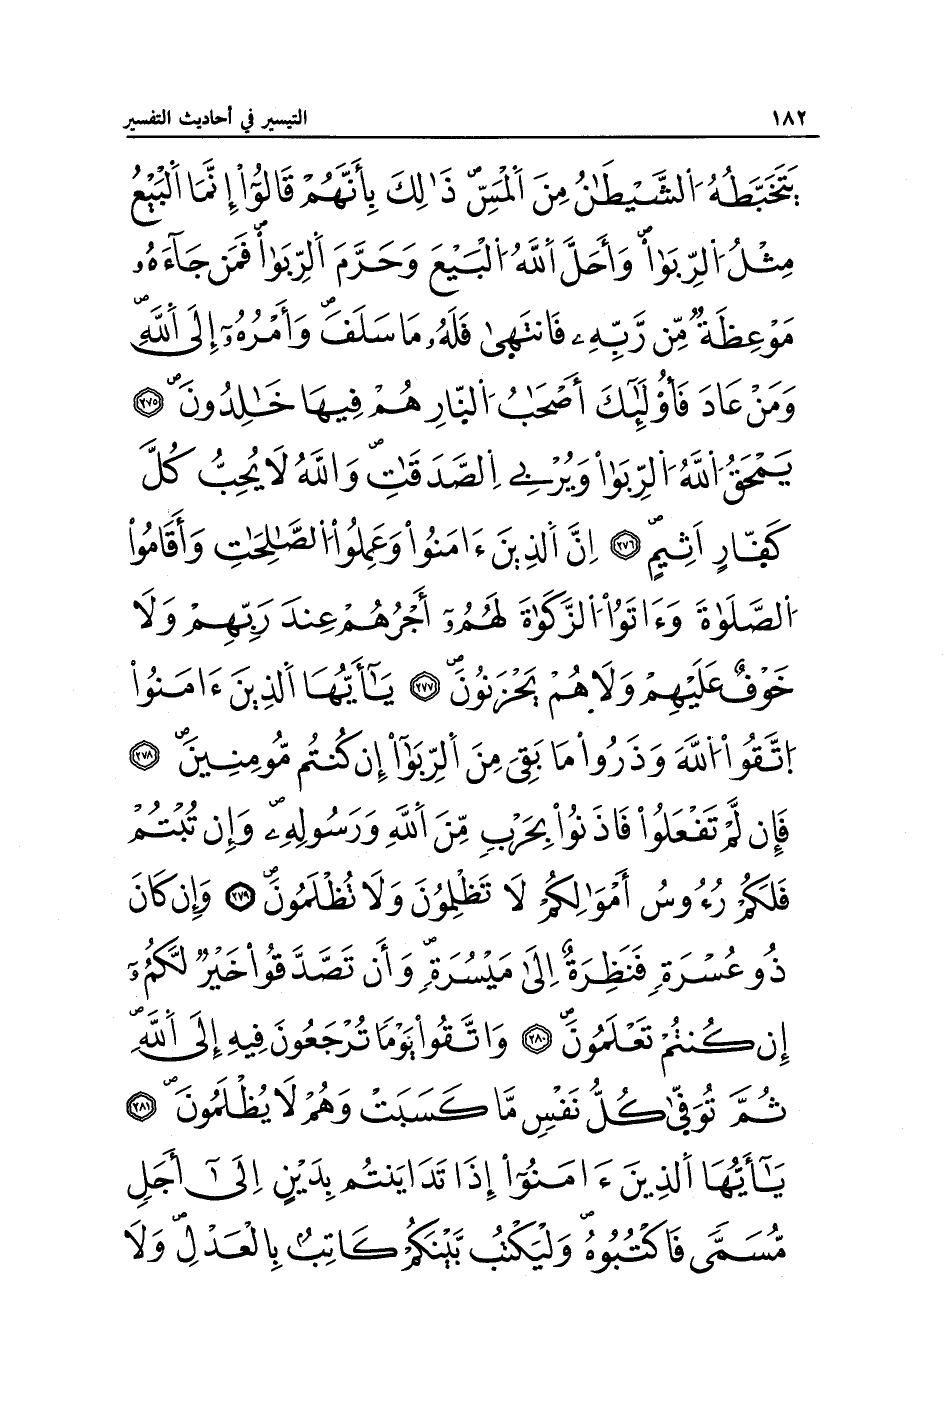 ١٨٢ التيسير في أحاديث التفسير
يَتَخَبَّطُهُ اُلشَّيْطَٰنُ مِنَ اَلْمَسِّۖ ذَٰلِكَ بِأَنَّهُمْ قَالُوٓاْ إِنَّمَا اَلْبَيْعُ
مِثْلُ اُلرِّبَوٰاْۖ وَأَحَلَّ اَللَّهُ اُلْبَيْعَ وَحَرَّمَ اَلرِّبَوٰاْۖ فَمَن جَآءَهُۥ
مَوْعِظَةٌ مِّن رَّبِّهِۦ فَانتَهىٰ فَلَهُۥ مَا سَلَفَۖ وَأَمْرُهُۥٓ إِلَى اَللَّهِۖ
وَمَنْ عَادَ فَأُوْلَٰٓئِكَ أَصْحَٰبُ اُلنَّارِ هُمْ فِيهَا خَٰلِدُونَۖ ٢٧٥
يَمْحَقُ اُللَّهُ اُلرِّبَوٰاْ وَيُرْبِے اِلصَّدَقَٰتِۖ وَاللَّهُ لَا يُحِبُّ كُلَّ
كَفّ۪ارٍ اَثِيمٍۖ ٢٧٦ اِنَّ اَلذِينَ ءَامَنُواْ وَعَمِلُواْ اُلصَّٰلِحَٰتِ وَأَقَامُواْ
اُلصَّلَوٰةَ وَءَاتَوُاْ اُلزَّكَوٰةَ لَهُمُۥٓ أَجْرُهُمْ عِندَ رَبِّهِمْ وَلَا
خَوْفٌ عَلَيْهِمْ وَلَا هُمْ يَحْزَنُونَۖ ٢٧٧ يَٰٓأَيُّهَا اَلذِينَ ءَامَنُواْ
اُتَّقُواْ اُللَّهَ وَذَرُواْ مَا بَقِيَ مِنَ اَلرِّبَوٰٓاْ إِن كُنتُم مُّومِنِينَۖ ٢٧٨
فَإِن لَّمْ تَفْعَلُواْ فَاذَنُواْ بِحَرْبٍ مِّنَ اَللَّهِ وَرَسُولِهِۦۖ وَإِن تُبْتُمْ
فَلَكُمْ رُءُوسُ أَمْوَٰلِكُمْ لَا تَظْلِمُونَ وَلَا تُظْلَمُونَۖ ٢٧٩ وَإِن كَانَ
ذُو عُسْرَةٍ فَنَظِرَةٌ اِلَىٰ مَيْسُرَةٍۖ وَأَن تَصَّدَّقُواْ خَيْرٌ لَّكُمُۥٓ
إِن كُنتُمْ تَعْلَمُونَۖ ٢٨٠ وَاتَّقُواْ يَوْمًا تُرْجَعُونَ فِيهِ إِلَى اَللَّهِۖ
ثُمَّ تُوَفّىٰ كُلُّ نَفْسٍ مَّا كَسَبَتْ وَهُمْ لَا يُظْلَمُونَۖ ٢٨١
يَٰٓأَيُّهَا اَلذِينَ ءَامَنُوٓاْ إِذَا تَدَايَنتُم بِدَيْنٍ اِلَىٰٓ أَجَلٍ
مُّسَمّىً فَاكْتُبُوهُۖ وَلْيَكْتُب بَّيْنَكُمْ كَاتِبٌ بِالْعَدْلِۖ وَلَا